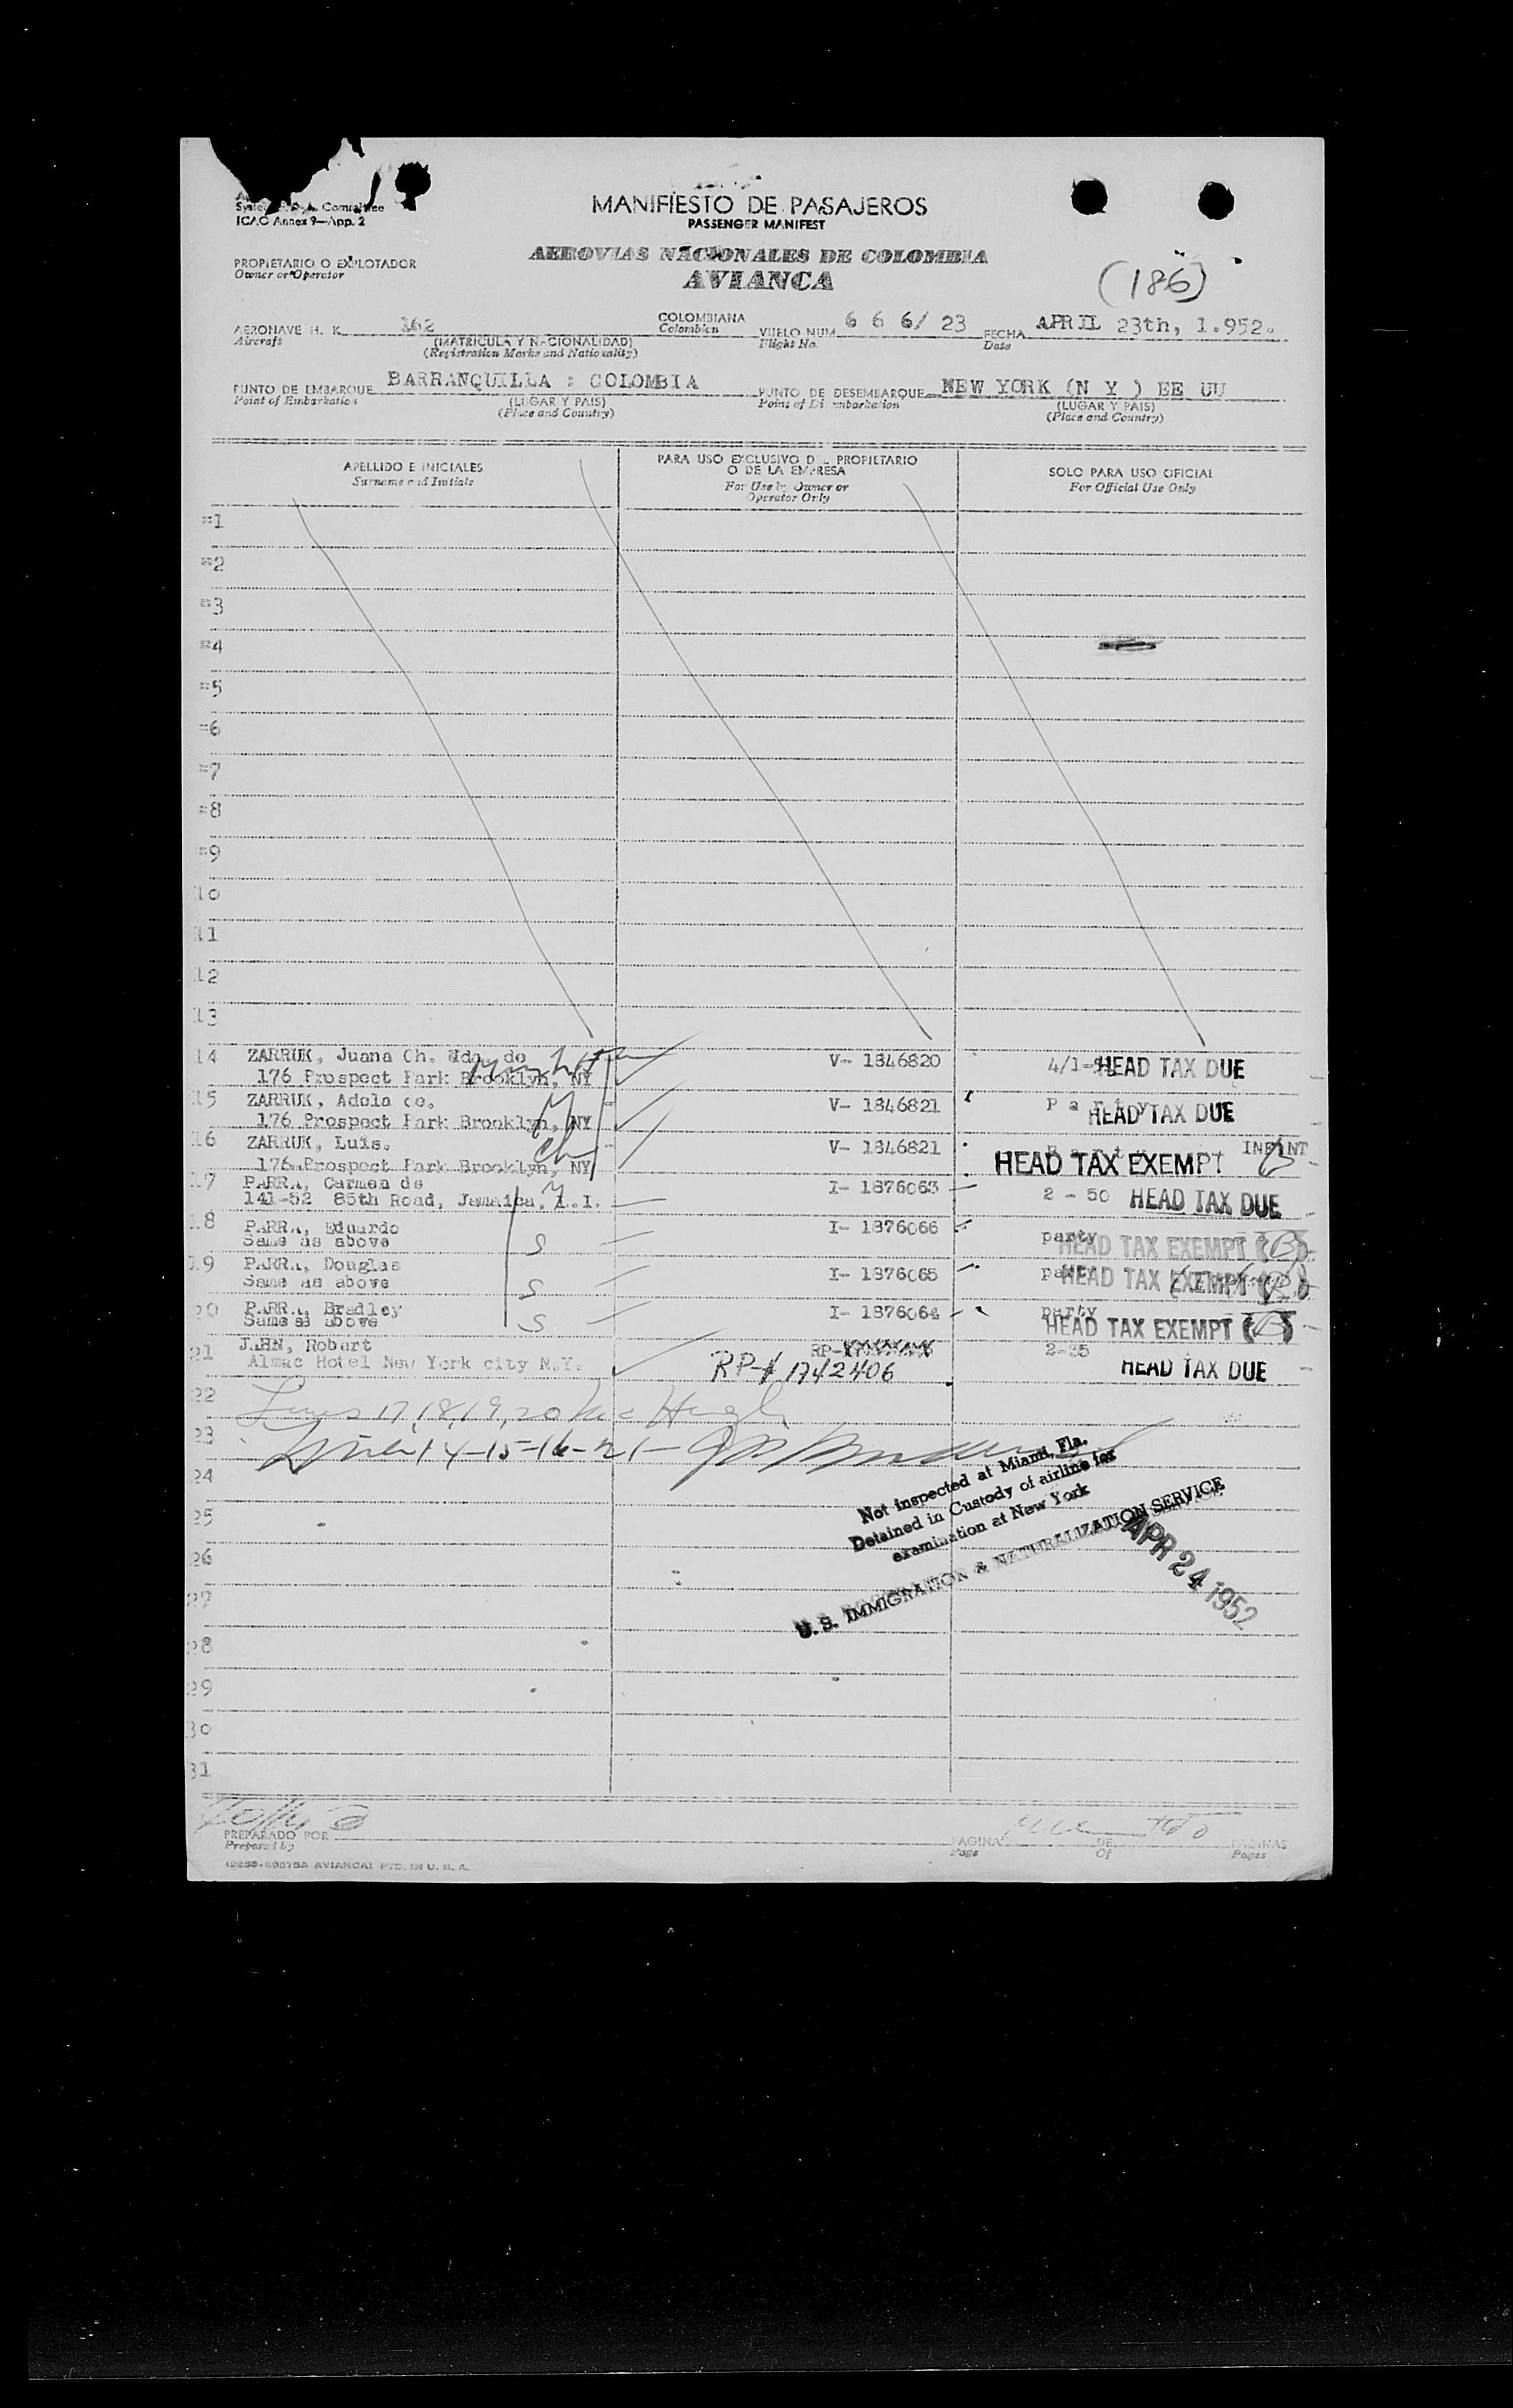 MANIFIESTO DE PASAJEROS
PASSENGER MANIFEST
Committee
ICAO Annex 9—App. 2
AEROVIAS NACIONALES DE COLOMBIA
AVIANCA
PROPIETARIO O EXPLOTADOR
Owner or Operator
(186)
AERONAVE H. K. 162 COLOMBIANA VUELO NUM. 6 6 6/ 23 FECHA APRIL 23th, 1.952.
Aircraft (MATRICULA Y NACIONALIDAD) Colombian Flight No. Date
(Registration Marks and Nationality)
PUNTO DE EMBARQUE BARRANQUILLA : COLOMBIA PUNTO DE DESEMBARQUE NEW YORK (N Y ) EE UU
Point of Embarkation (LUGAR Y PAIS) Point of Disembarkation (LUGAR Y PAIS)
(Place and Country) (Place and Country)
APELLIDO E INICIALES PARA USO EXCLUSIVO DEL PROPIETARIO O DE LA EMPRESA SOLO PARA USO OFICIAL
Surname and Initials For Use by Owner or Operator Only For Official Use Only
=1
=2
=3
=4
=5
=6
=7
=8
=9
10
11
12
13
14 ZARRUK, Juana Ch. Vda. de V- 1846820 HEAD TAX DUE
176 Prospect Park Brooklyn, NY
15 ZARRUK, Adela de. V- 1846821 Party HEAD TAX DUE
176 Prospect Park Brooklyn, NY
16 ZARRUK, Luis. V- 1846821 INFANT
176 Prospect Park Brooklyn, NY HEAD TAX EXEMPT
17 PARRA, Carmen de I- 1876063 2 - 50 HEAD TAX DUE
141-52 85th Road, Jamaica, L.I.
18 PARRA, Eduardo S I- 1876066 party HEAD TAX EXEMPT (B)
Same as above
19 PARRA, Douglas S I- 1876065 party HEAD TAX EXEMPT
Same as above
20 PARRA, Bradley S I- 1876064 party HEAD TAX EXEMPT (B)
Same as above
21 JAHN, Robert RP- 2-35
Almac Hotel New York city N.Y. RP-# 1742406 HEAD TAX DUE
22 Lines 17, 18, 19, 20
23 Lines 14-15-16-21-
24
Not inspected at Miami, Fla.
Detained in Custody of airline for
examination at New York
U. S. IMMIGRATION & NATURALIZATION SERVICE
APR 24 1952
25
26
27
28
29
30
31
PREPARADO POR PAGINA DE PAGINAS
Prepared by Page Of Pages
AVIANCA: PTD. IN U. S. A.